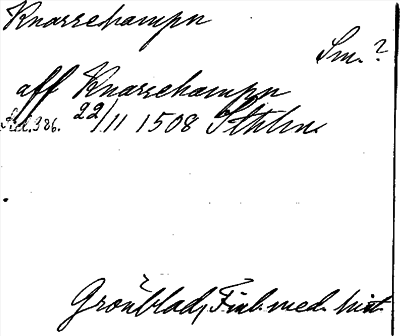 Knarrehampn
Sm.?
aff Knarrehampn
s. 386. 22/11 1508 Sthlm
Grönblad, Finl. med. hist